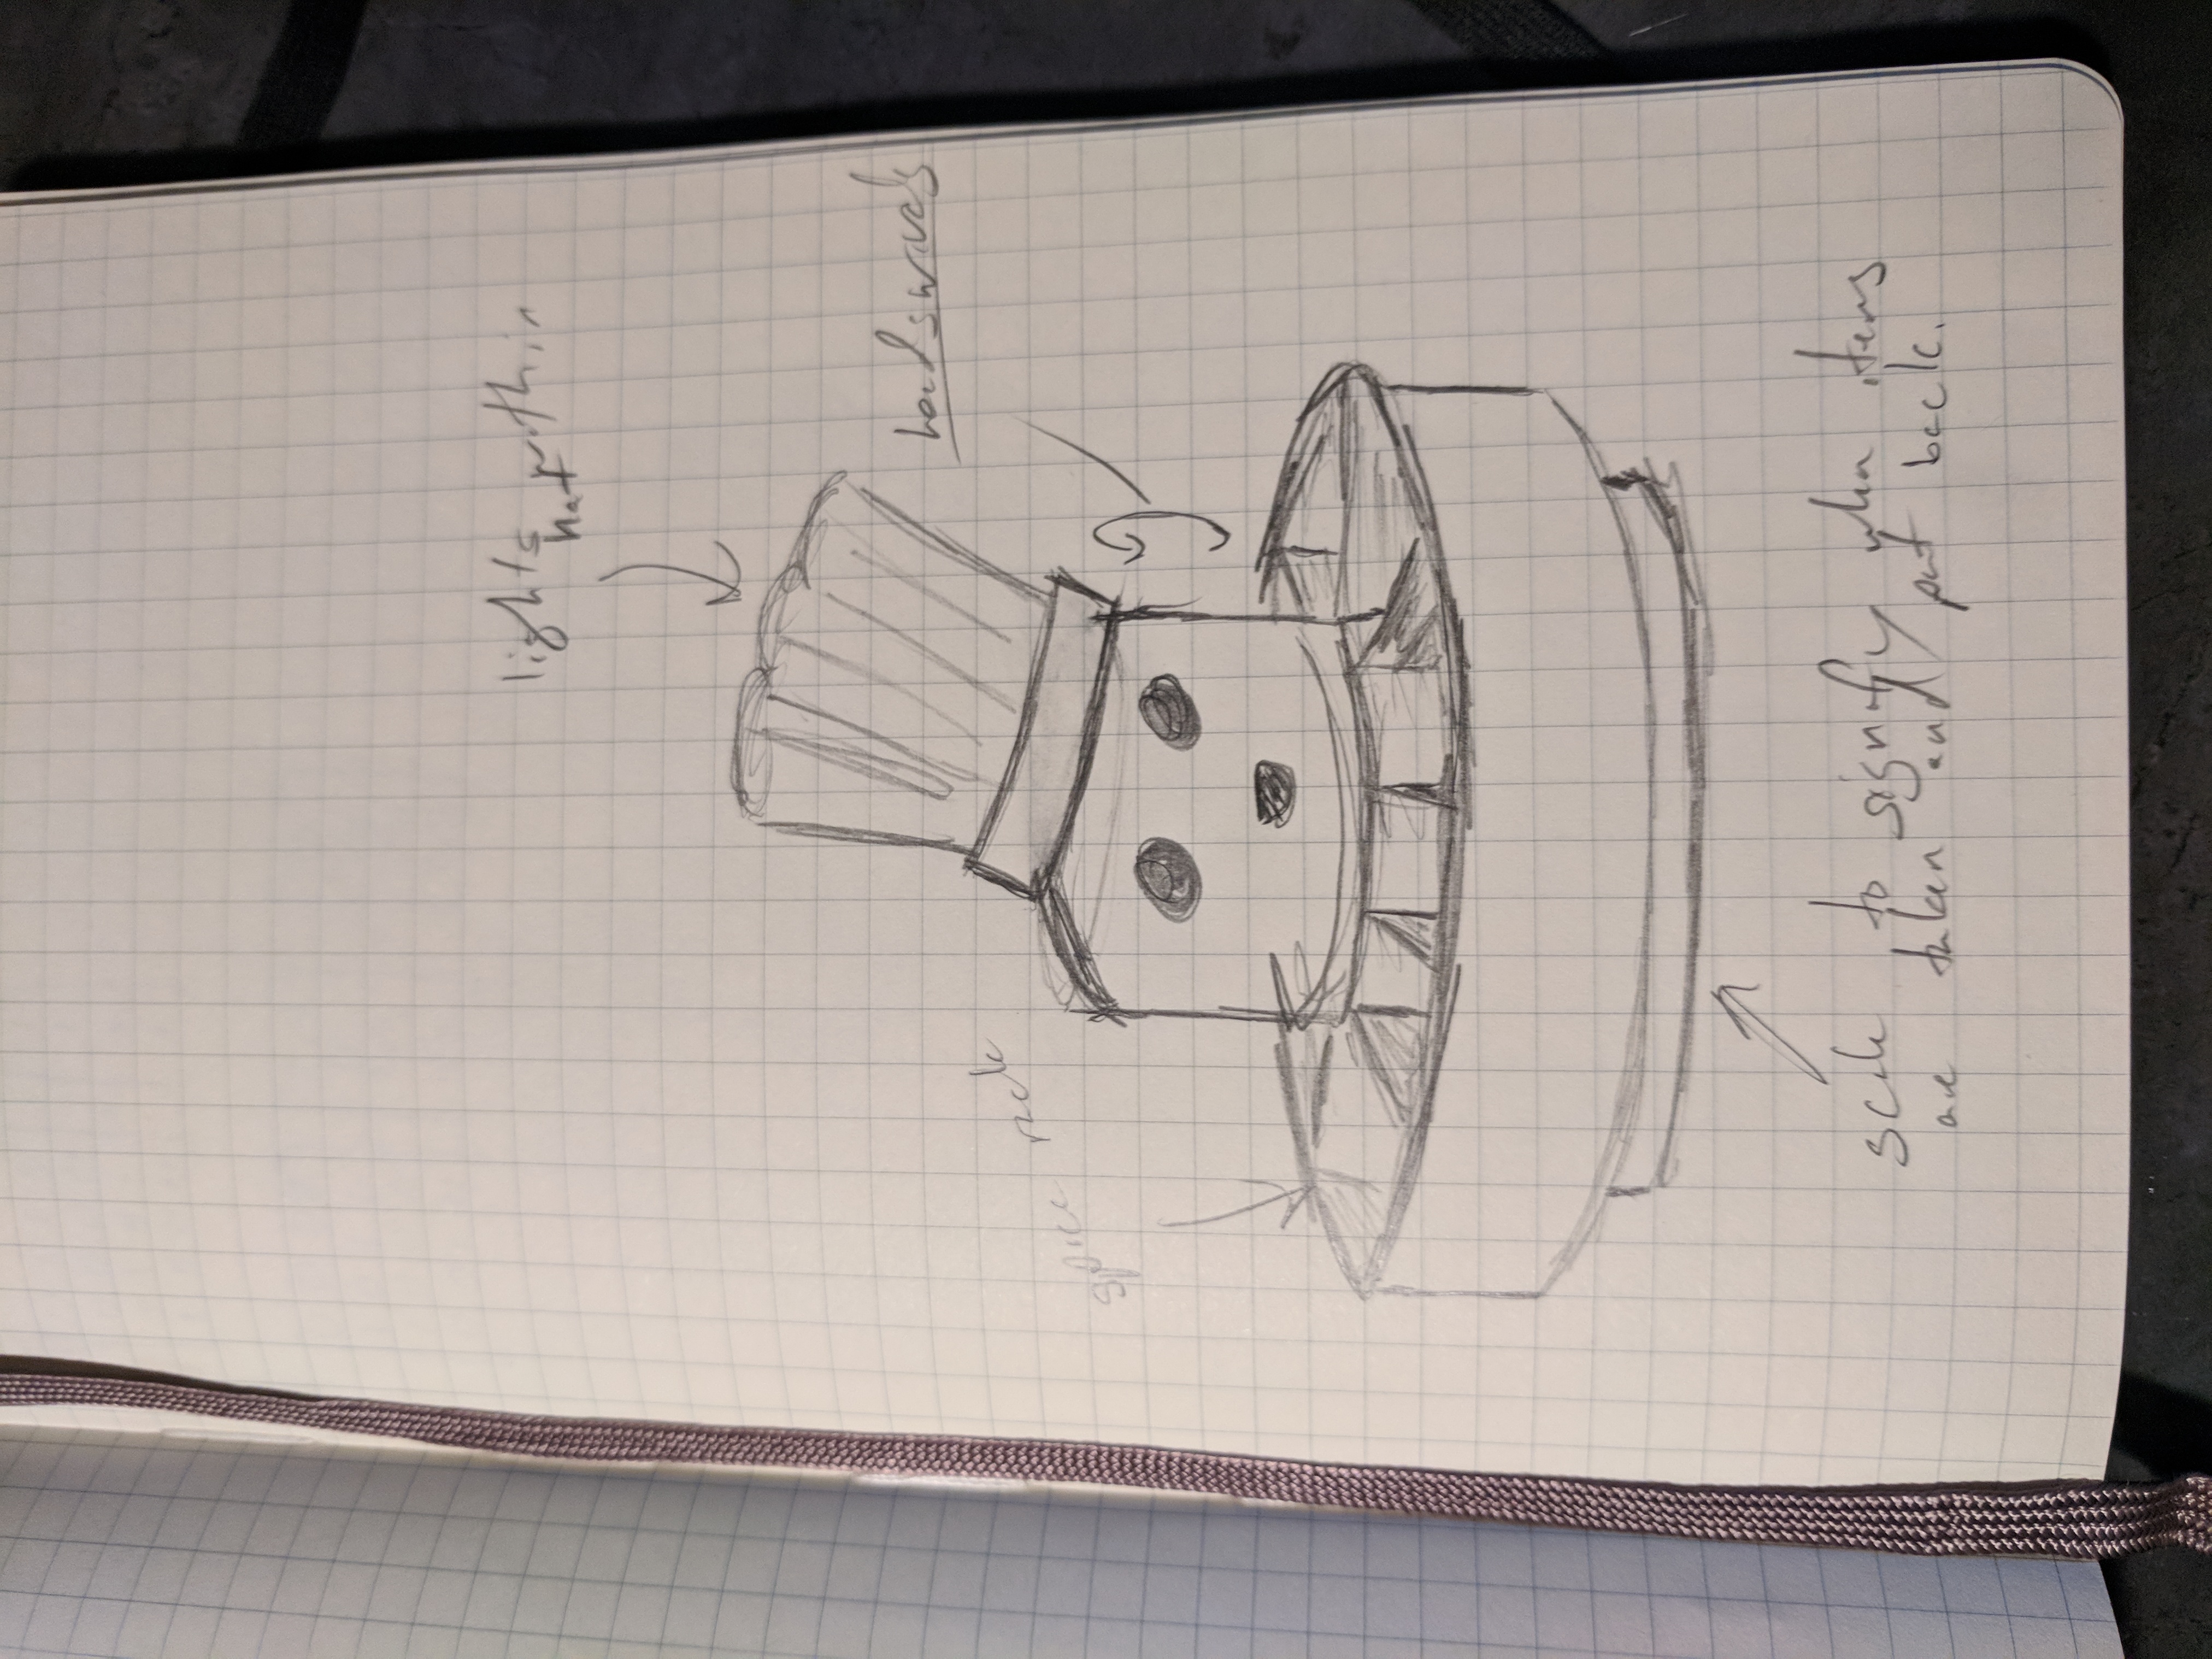 lights within
hat
head swivels
spice rack
scale to signify when items
are taken and put back.